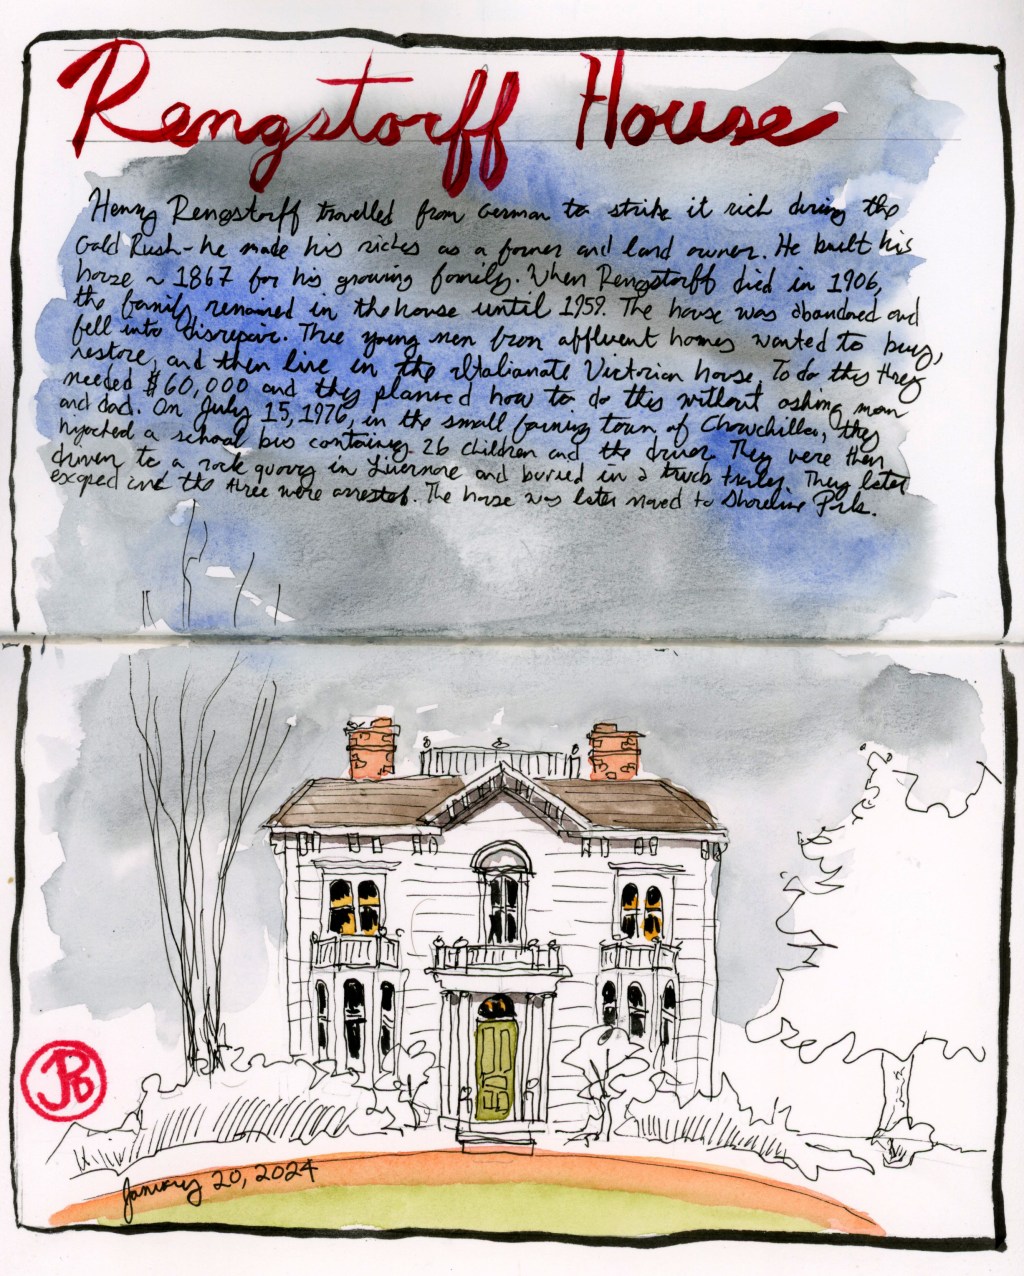 Rengstorff House
Henry Rengstorff travelled from German to strike it rich during the
Gold Rush - he made his riches as a farmer and land owner. He built his
house ~ 1867 for his growing family. When Rengstorff died in 1906,
the family remained in the house until 1959. The house was abandoned and
fell into disrepair. Three young men from affluent homes wanted to buy,
restore, and then live in the Italianate Victorian house. To do this they
needed $60,000 and they planned how to do this without asking mom
and dad. On July 15, 1976, in the small farming town of Chowchilla, they
hijacked a school bus containing 26 children and the driver. They were then
driven to a rock quarry in Livermore and buried in a truck trailer. They later
escaped and the three were arrested. The house was later moved to Shoreline Park.
JPD
January 20, 2024